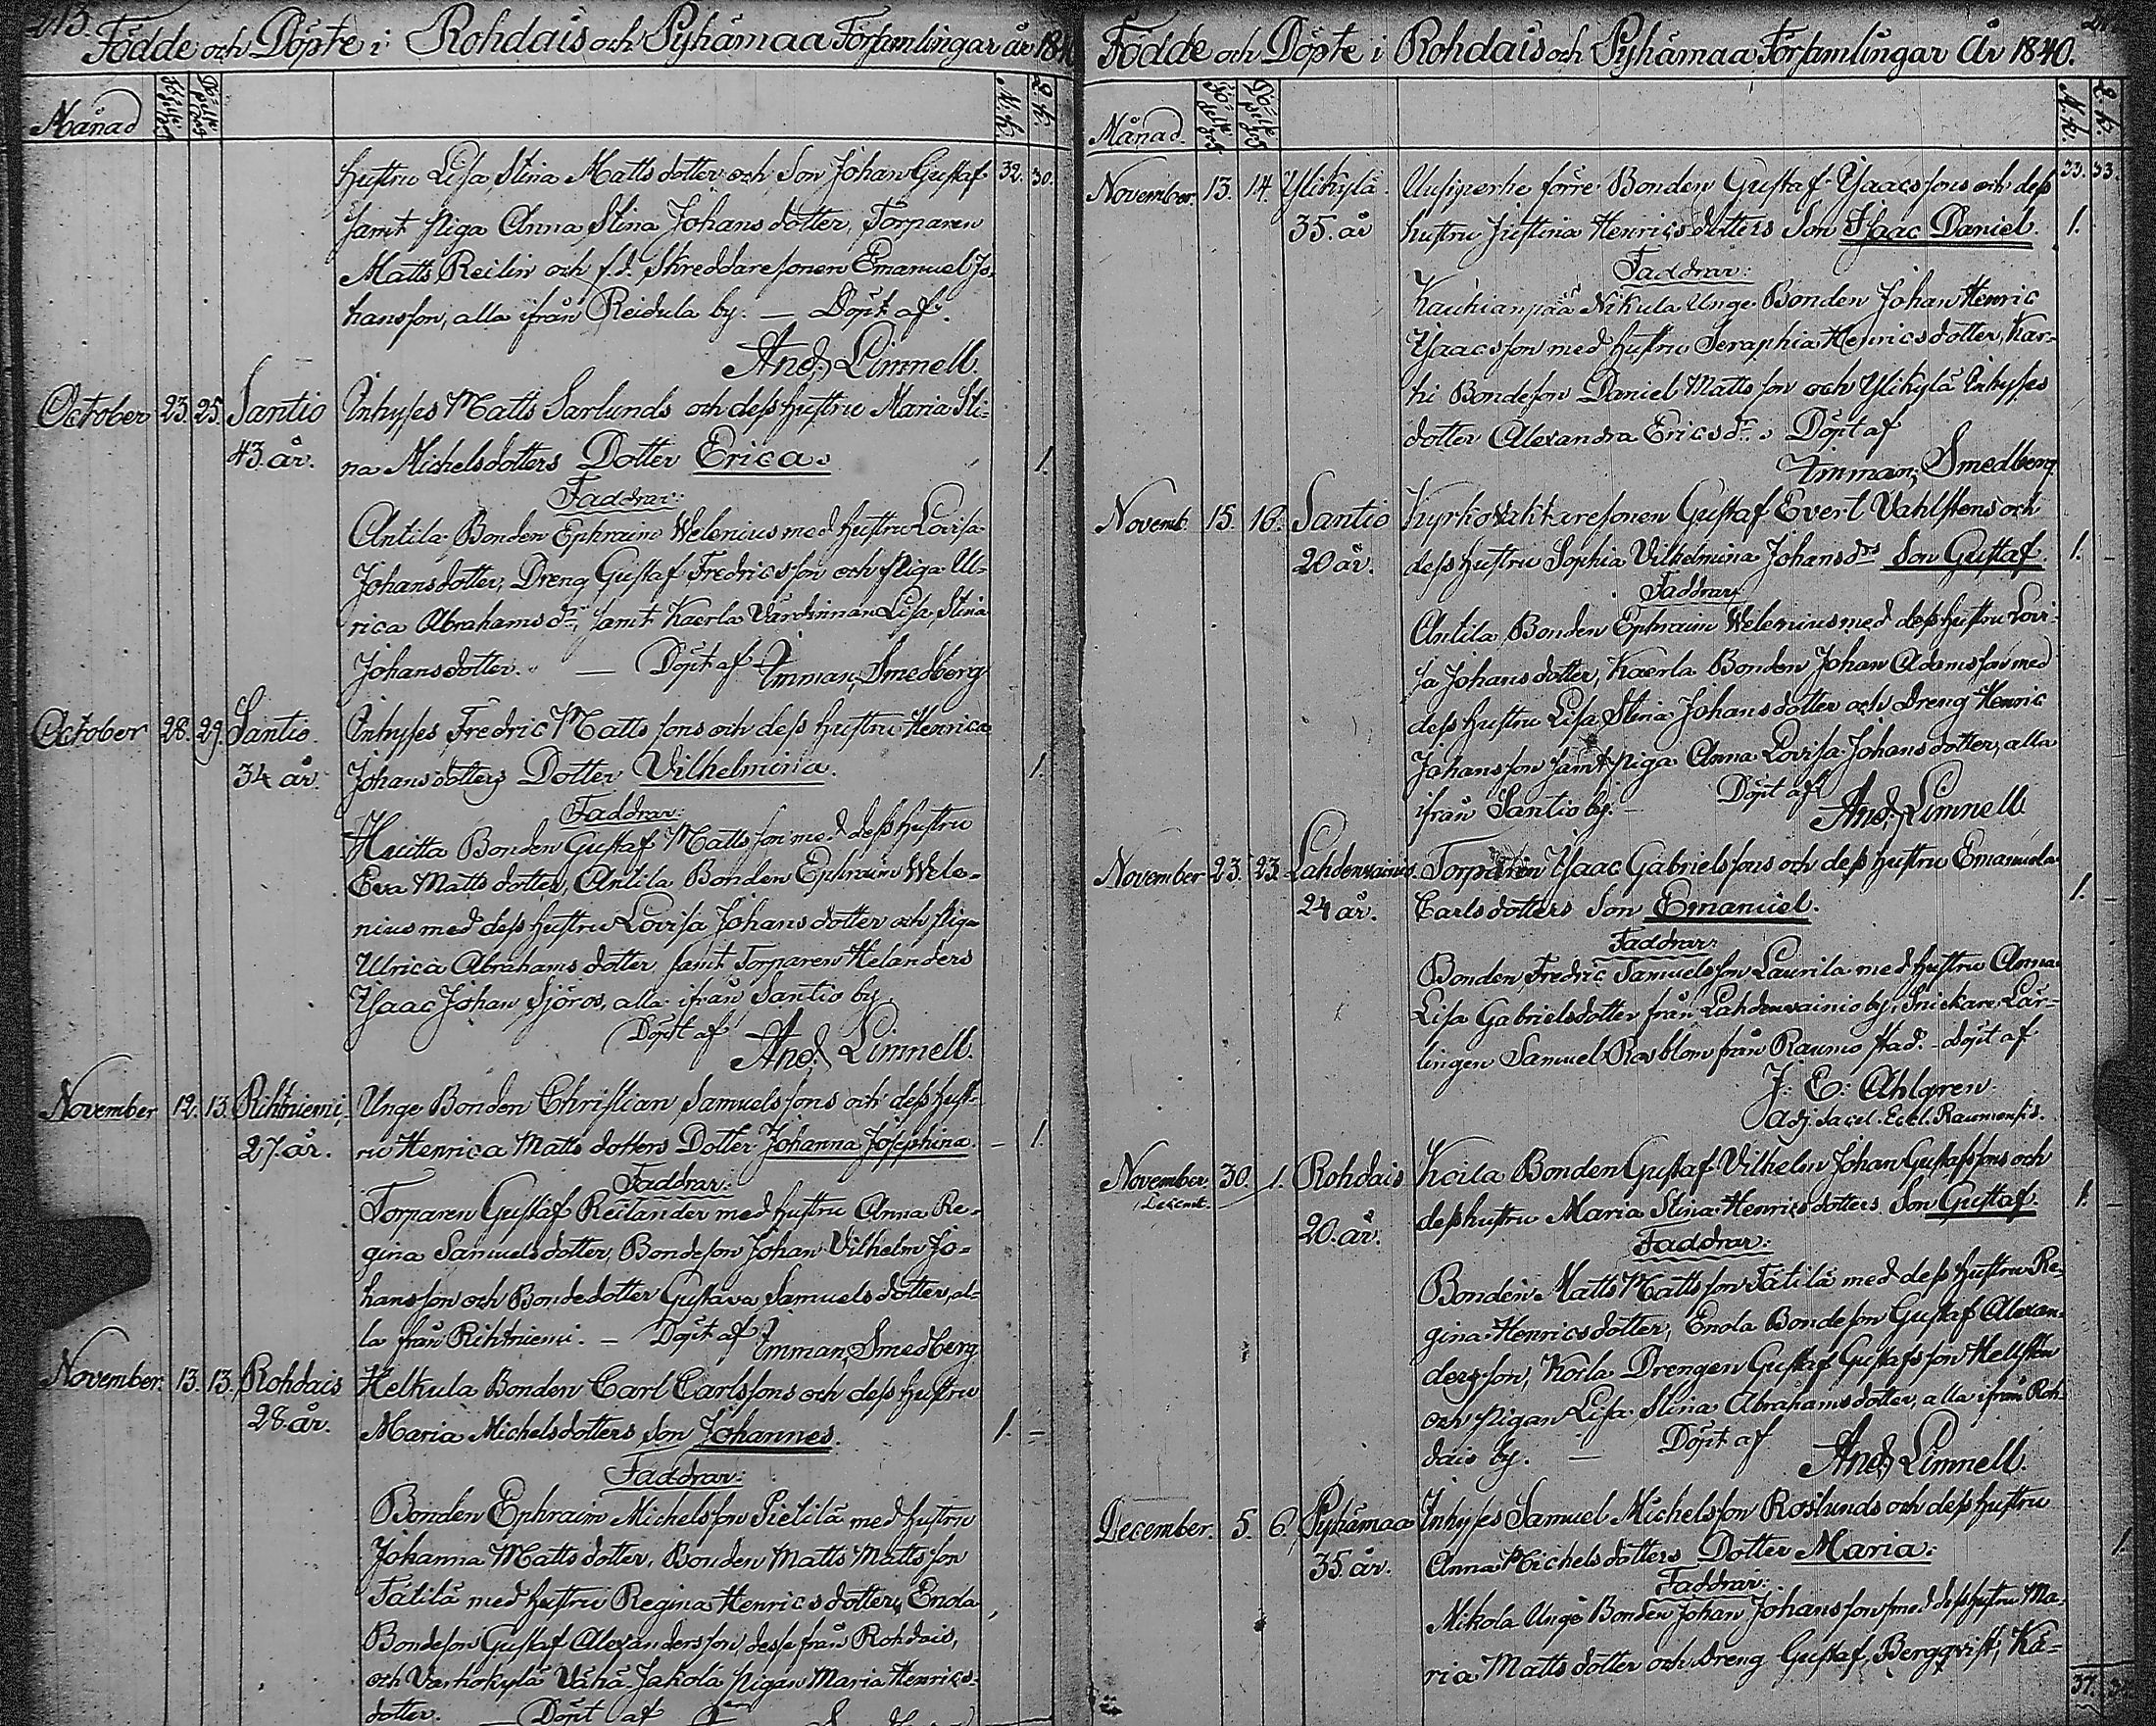 213.
Födde och Döpte i Rohdais och Pyhämaa Församlingar år 1840
Månad
M.k. Q.k.
hustru Lisa Stina Matts dotter och Son Johan Gustaf 32. 30.
samt piga Anna Stina Johans dotter, Torparen
Matts Reilin och f.d. Skreddaresonen Emanuel Jo-
hansson, alla ifrån Reidula by. — Döpt af
And. Limnell.
October 23. 25. Santio Inhyses Matts Sarlunds och dess hustru Maria Sti-
43 år. na Michelsdotters Dotter Erica. 1.
Faddrar:
Antila Bonden Ephraim Welenius med hustru Lovisa
Johansdotter, Dreng Gustaf Fredricsson och piga Ul-
rica Abrahams dr, samt Kaerla Värdinnan Lisa Stina
Johansdotter. — Döpt af Imman. Smedberg
October 28. 29. Santio Inhyses Fredric Matts sons och dess hustru Henrica
34 år. Johansdotters Dotter Vilhelmina. 1.
Faddrar:
Heitta Bonden Gustaf Mattsson med dess hustru
Eva Matts dotter, Antila Bonden Ephraim Wele-
nius med dess hustru Lovisa Johans dotter och piga
Ulrica Abrahams dotter, samt Torparen Helanders
Isaac Johan Sjöros, alla ifrån Santio by.
Döpt af And. Limnell.
November 12. 13. Rihtniemi, Unge Bonden Christian Samuelssons och dess hust-
27. år. ru Henrica Matts dotters Dotter Johanna Josephina. – 1.
Faddrar:
Torparen Gustaf Reilander med hustru Anna Re-
gina Samuelsdotter, Bondeson Johan Vilhelm Jo-
hansson och Bondedotter Gustava Samuels dotter, al-
la från Rihtniemi. — Döpt af Imman. Smedberg
November. 13. 13. Rohdais Helkula Bonden Carl Carlssons och dess hustru
28. år. Maria Michelsdotters son Johannes. 1. –
Faddrar:
Bonden Ephraim Michelsson Pietilä med hustru
Johanna Matts dotter, Bonden Matts Mattsson
Tätilä med hustru Regina Henrics dotter, Enola
Bondeson Gustaf Alexandersson, desse från Rohdais,
och Varhokylä Vähä Jakola pigan Maria Henrics-
dotter. — Döpt af
Födde och Döpte i Rohdais och Pyhämaa Församlingar År 1840.
Månad.
M.k. Q.k.
November. 13. 14. Ylikylä Uusiperhe förre Bonden Gustaf Isaacssons och dess 33. 33.
35. år hustru Justina Henricsdotters Son Isaac Daniel. 1.
Faddrar:
Kaukianpää Nikula Unge Bonden Johan Henric
Isaacsson med hustru Seraphia Henricsdotter, Kar-
hi Bondeson Daniel Mattsson och Ylikylä Inhyses
dotter Alexandra Ericsdr. Döpt af
Imman. Smedberg
Novemb. 15. 16. Santio Kyrkovaktaresonen Gustaf Evert Vahlstens och
20 år. dess hustru Sophia Vilhelmina Johansdrs Son Gustaf. 1. –
Faddrar:
Antila Bonden Ephraim Welenius med dess hustru Lovi-
sa Johans dotter, Kaerla Bonden Johan Adamsson med
dess hustru Lisa Stina Johans dotter och Dreng Henric
Johansson samt piga Anna Lovisa Johansdotter, alla
ifrån Santio by. — Döpt af And. Limnell.
November 23. 23. Lahdenvainio. Torparen Isaac Gabrielssons och dess hustru Emanuela
24 år. Carlsdotters Son Emanuel. 1. –
Faddrar:
Bonden Fredric Samuelsson Laurila med hustru Anna
Lisa Gabrielsdotter från Lahdenvainio by, Snickare Lär-
lingen Samuel Rosblom från Raumo stad. – Döpt af
J. E. Ahlgren.
Adj. Sacel. Eccl. Raumensis.
November 30. 1. Rohdais Koila Bonden Gustaf Vilhelm Johan Gustafssons och
Decemb. 20. år. dess hustru Maria Stina Henricsdotters Son Gustaf. 1. –
Faddrar:
Bonden Matts Mattsson Tätilä med dess hustru Re-
gina Henricsdotter, Enola Bondeson Gustaf Alexan-
dersson, Koila Drengen Gustaf Gustafsson Hellsten
och pigan Lisa Stina Abrahamsdotter, alla ifrån Roh-
dais by. — Döpt af And. Limnell.
December. 5. 6. Pyhämaa Inhyses Samuel Michelsson Roslunds och dess hustru
35. år. Anna Michelsdotters Dotter Maria. 1.
Faddrar:
Nikola Unge Bonden Johan Johansson med dess hustru Ma-
ria Matts dotter och Dreng Gustaf Bergqvist, Ka-
37.